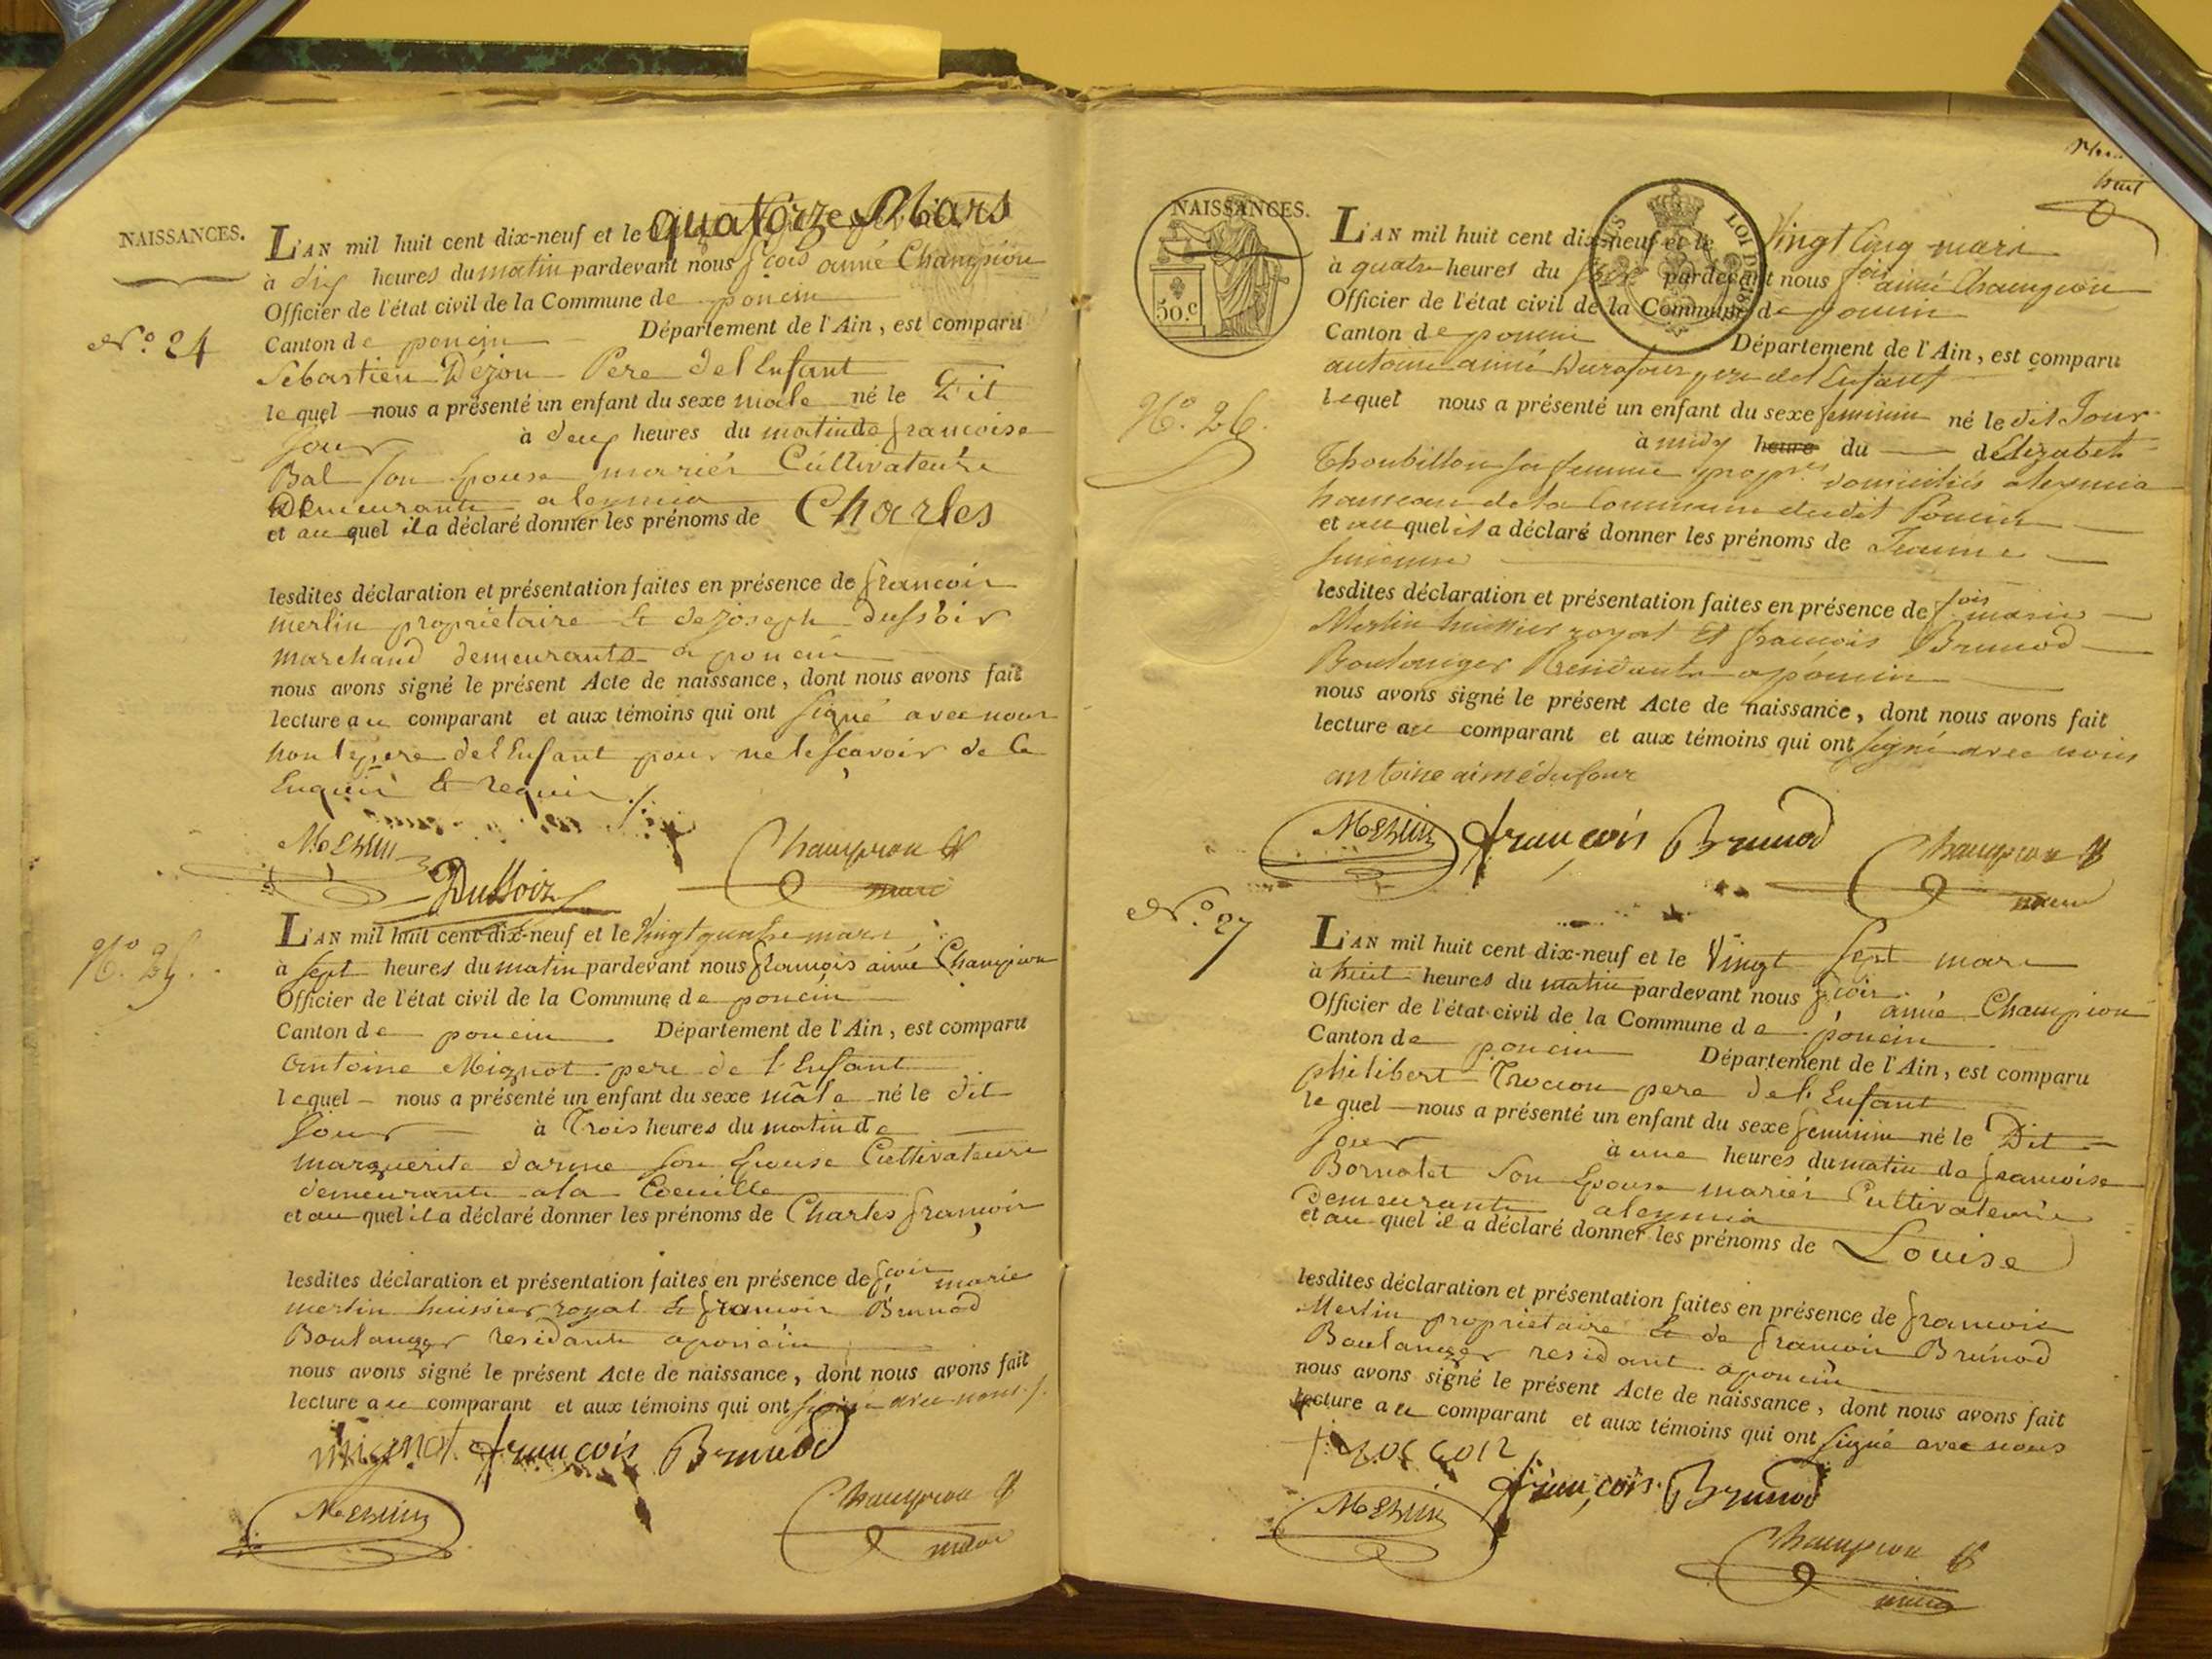 NAISSANCES.
L'AN mil huit cent dix-neuf et le quatorze Mars
à dix heures du matin pardevant nous fcois aimé Champion
Officier de l'état civil de la Commune de poncin
N.o 24
Canton de poncin Département de l'Ain, est comparu
Sebastien Dézon Pere del Enfant
lequel nous a présenté un enfant du sexe male né le Dit
jour à deux heures du matin de francoise
Bal son Epouse mariés Cultivateurs
Demeurants a leymia
et au quel il a déclaré donner les prénoms de Charles
lesdites déclaration et présentation faites en présence de francois
merlin proprietaire Et de joseph Dussoir
marchand demeurants a poncin
nous avons signé le présent Acte de naissance, dont nous avons fait
lecture au comparant et aux témoins qui ont signé avec nous
non le pere del Enfant pour ne le scavoir de ce
Enquis & requis ./.
Merlin
Dussoir
Champion
maire
N.o 25.
L'AN mil huit cent dix-neuf et le vingt quatre mars
à sept heures du matin pardevant nous françois aimé Champion
Officier de l'état civil de la Commune de poncin
Canton de poncin Département de l'Ain, est comparu
antoine Mignot pere de l'Enfant
lequel nous a présenté un enfant du sexe mâle né le dit
jour à Trois heures du matin de
marguerite darme son Epouse Cultivateurs
demeurants a la Coeuille
et au quel il a déclaré donner les prénoms de Charles francois
lesdites déclaration et présentation faites en présence de fcois marie
merlin huissier royal & francois Brunod
Boulanger residants a poncin
nous avons signé le présent Acte de naissance, dont nous avons fait
lecture au comparant et aux témoins qui ont signé avec nous ./.
mignot. françois Brunod
Merlin
Champion
maire
huit
NAISSANCES.
50.c
LOI DE
L'AN mil huit cent dix-neuf et le Vingt Cinq mars
à quatre heures du soir pardevant nous fcois aimé Champion
Officier de l'état civil de la Commune de poncin
Canton de poncin Département de l'Ain, est comparu
antoine aimé Durafour pere del Enfant
N.o 26.
lequel nous a présenté un enfant du sexe feminin né le dit Jour
à midy heure du de Elizabet
Thoubillon sa femme propres domiciliés a leymia
hameau de la Commune dudit Poncin
et au quel il a déclaré donner les prénoms de Jeanne
lesdites déclaration et présentation faites en présence de fcois marie
Merlin huissier royal Et francois Brunod
Boulanger Residants a poncin
nous avons signé le présent Acte de naissance, dont nous avons fait
lecture au comparant et aux témoins qui ont signé avec nous
antoine aimé dufour
Merlin françois Brunod
Champion
maire
N.o 27
L'AN mil huit cent dix-neuf et le Vingt Sept mars
à huit heures du matin pardevant nous fcois aimé Champion
Officier de l'état civil de la Commune de poncin
Canton de poncin Département de l'Ain, est comparu
philibert Trocon pere del Enfant
le quel nous a présenté un enfant du sexe feminin né le Dit
Jour à une heures du matin de francoise
Bornalet Son Epouse mariés Cultivateurs
Demeurants a leymia
et au quel il a déclaré donner les prénoms de Louise
lesdites déclaration et présentation faites en présence de francois
Merlin proprietaire Et de francois Brunod
Boulanger residant a poncin
nous avons signé le présent Acte de naissance, dont nous avons fait
lecture au comparant et aux témoins qui ont signé avec nous
trocon
françois Brunod
Merlin
Champion
maire